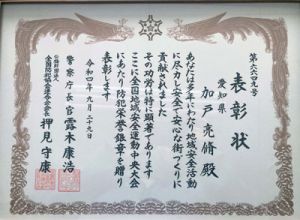 第六六四九号
表彰状
愛知県
加戸亮脩殿
あなたは多年にわたり地域安全活動
に尽力し安全で安心な街づくりに
貢献されました
その功労は特に顕著であります
ここに全国地域安全運動中央大会
にあたり防犯栄誉銀章を贈り
表彰します
令和四年九月二十九日
警察庁長官 露木康浩
公益財団法人
全国防犯協会連合会会長 押見守康